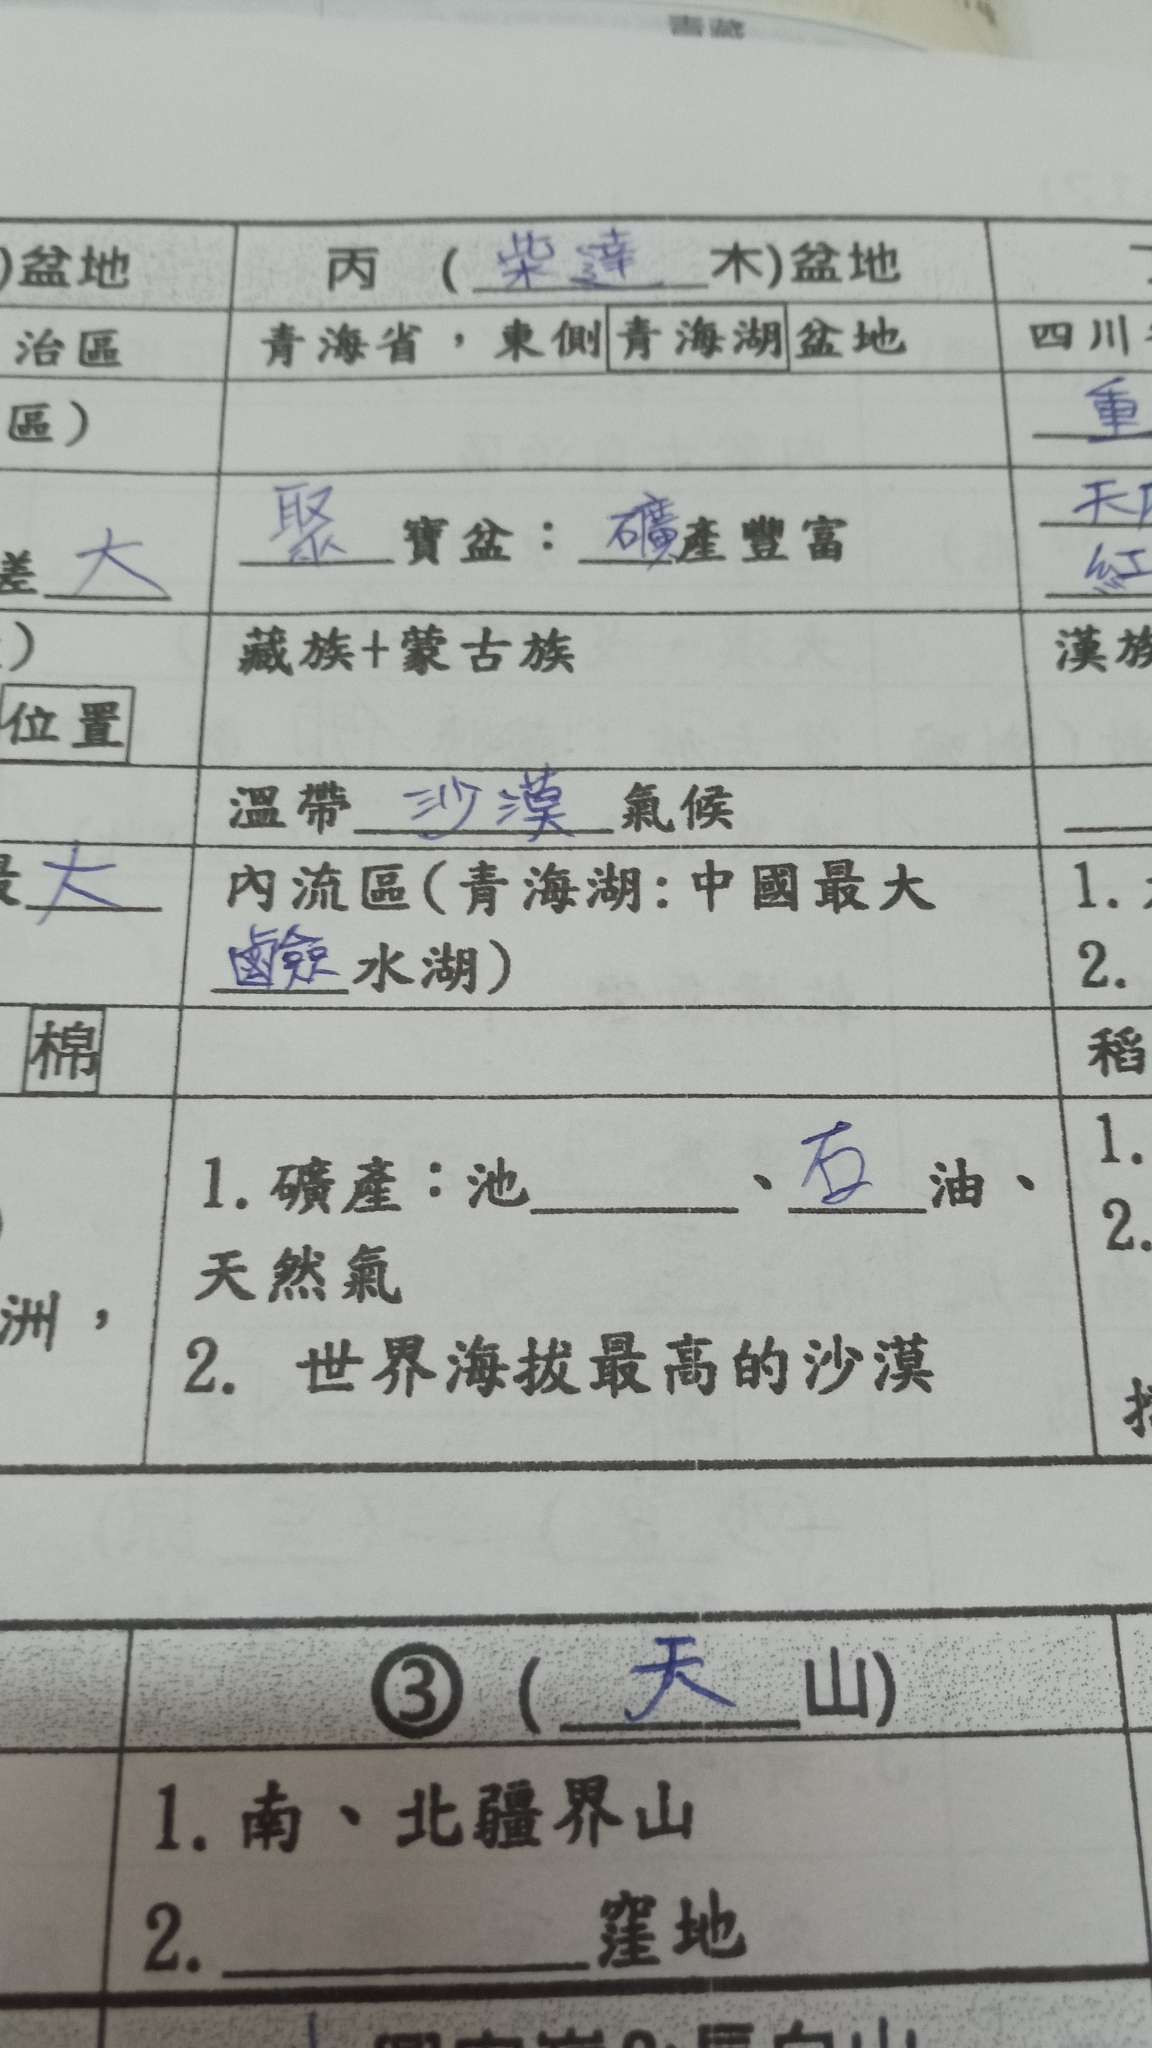 )盆地 丙 (柴達木)盆地
治區 青海省，東側青海湖盆地 四川
區) 重
差大 聚寶盆：礦產豐富 天府
紅
) 藏族+蒙古族 漢族
位置
溫帶沙漠氣候
最大 內流區(青海湖:中國最大 1.
鹵鹼水湖) 2.
棉 稻
1.礦產：池____、石油、 1.
天然氣 2.
洲，
2. 世界海拔最高的沙漠
③ (天山)
1.南、北疆界山
2.____窪地